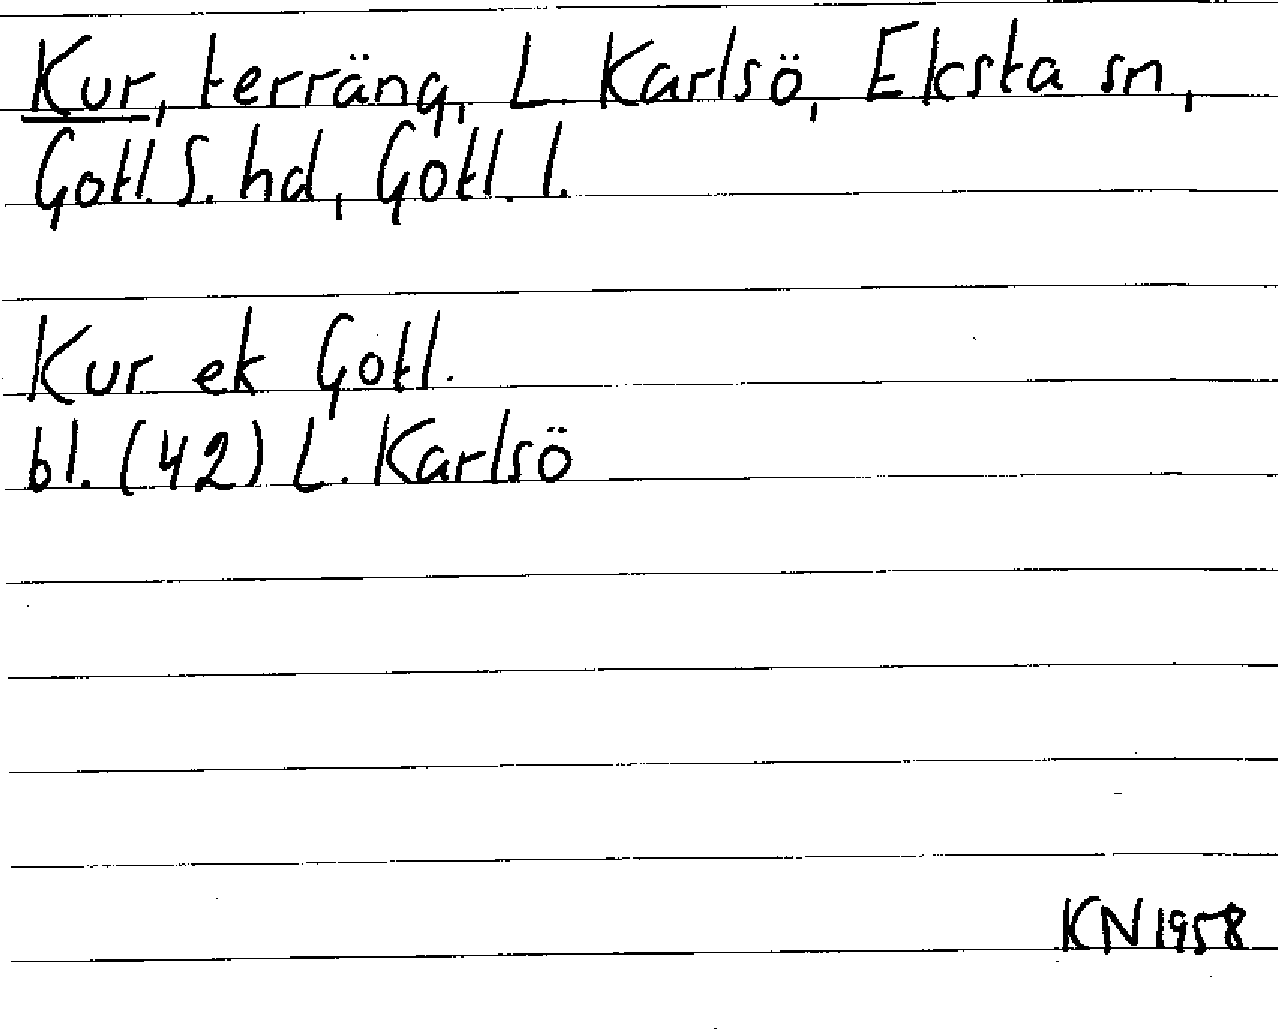 Kur, terräng, L Karlsö, Eksta sn,
Gotl. S. hd, Gotl. l.
Kur ek Gotl.
bl. (42) L. Karlsö
KN 1958